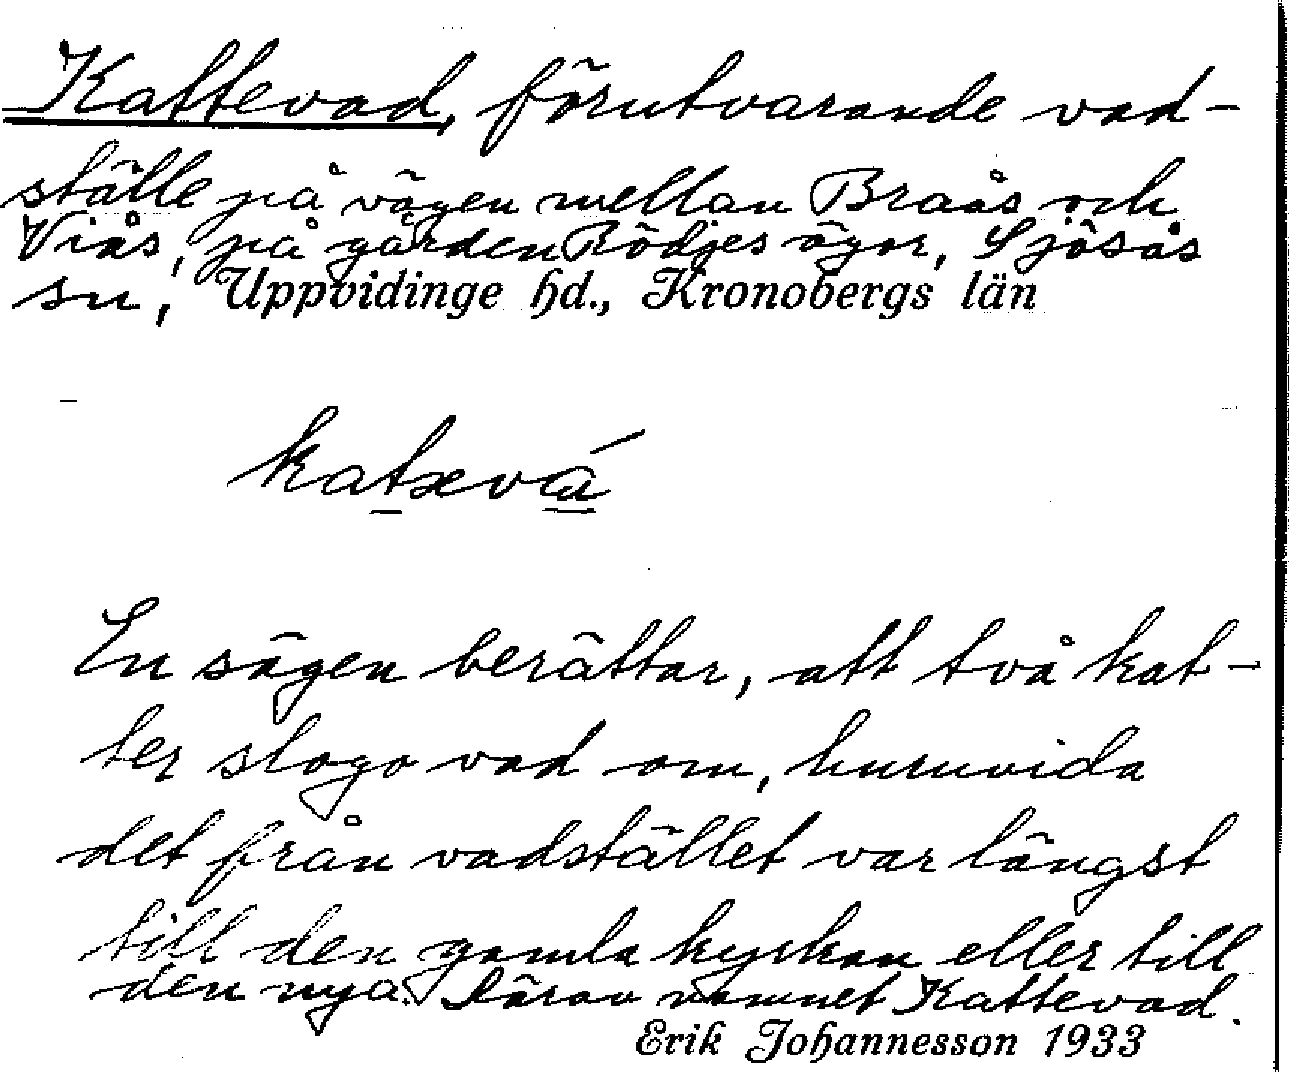 Kattevad, förutvarande vad-
ställe på vägen mellan Braås och
Viås, på gården Rödjes ägor, Sjösås
sn, Uppvidinge hd., Kronobergs län
katəvá
En sägen berättar, att två kat-
ter slogo vad om, huruvida
det från vadstället var längst
till den gamla kyrkan eller till
den nya. Därav namnet Kattevad.
Erik Johannesson 1933